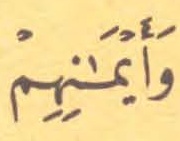 وَأَيْمَٰنِهِمْ